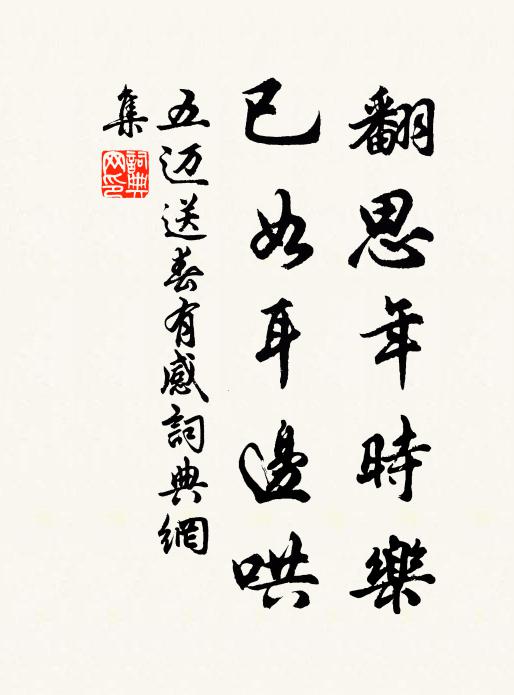 翻思年時樂
已如耳邊哄
五迈送春有感詞典網
集
詞典
网印